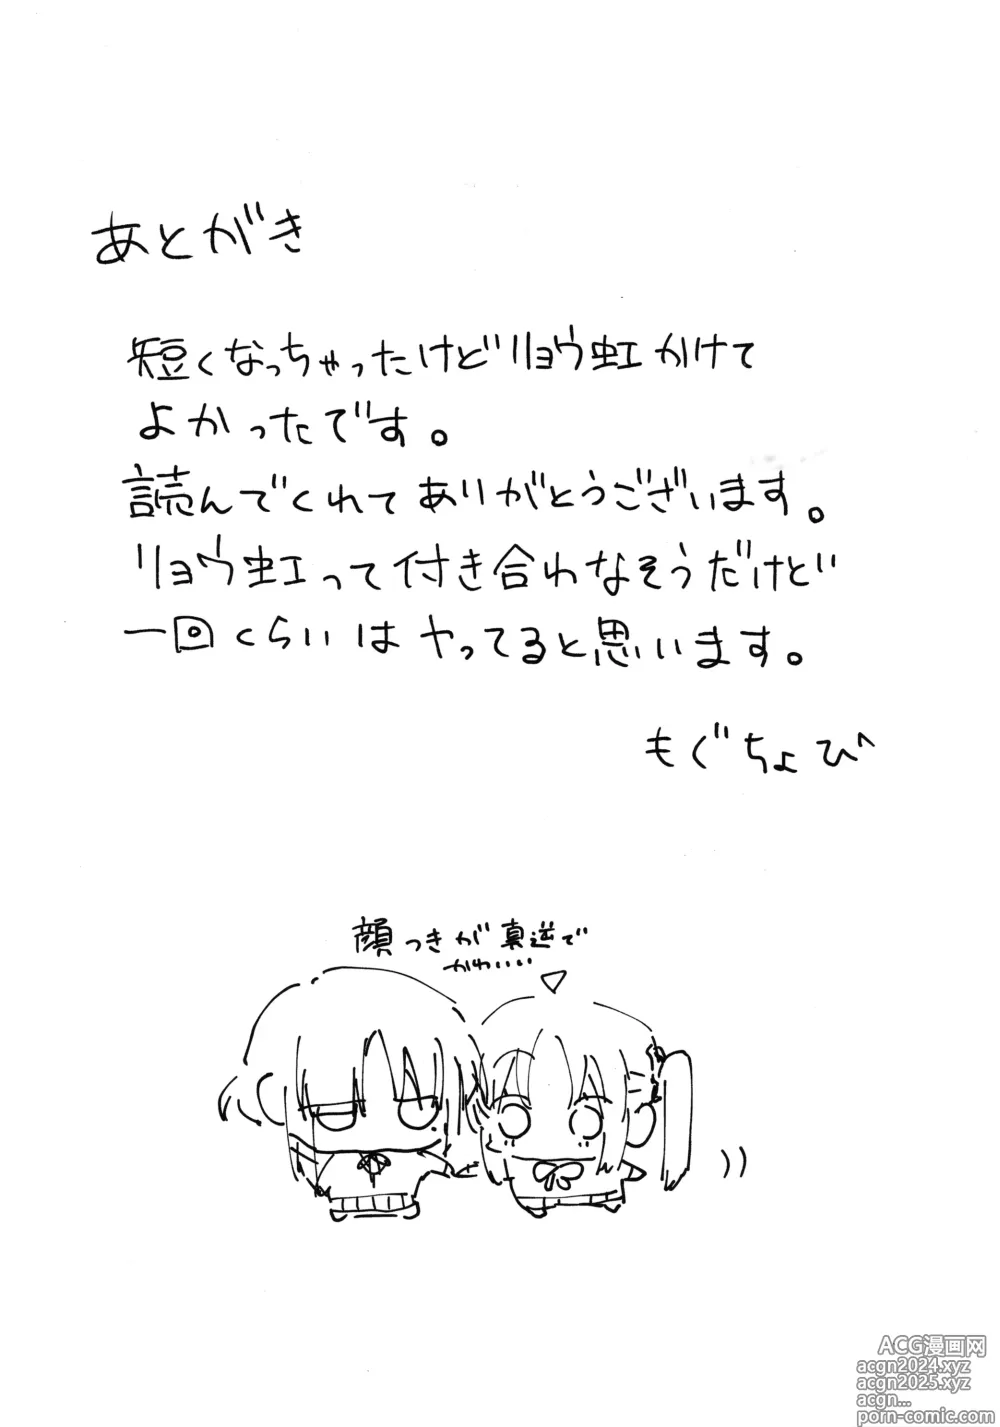 あとがき
短くなっちゃったけどリョウ虹かけて
よかったです。
読んでくれてありがとうございます。
リョウ虹って付き合わなそうだけど
一回くらいはヤってると思います。
もぐちょび
顔つきが真逆で
かわいい
ACG漫画网
acgn2024.xyz
acgn2025.xyz
acgn...
porn-comic.com